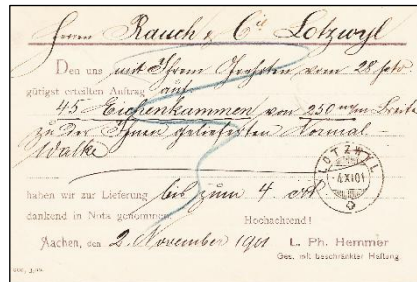 Herren Rauch & Cie Lotzwyl
Den uns mit Ihrem Geehrten vom 28 foto
gütigst erteilten Auftrag auf
45 Eichenkammen von 250 m/m Breite
zu der Ihnen gelieferten Normal-
Walke
haben wir zur Lieferung bis zum 4. crt
dankend in Nota genommen.
Hochachtend!
Aachen, den 2. November 1901
L. Ph. Hemmer
Ges. mit beschränkter Haftung.
LOTZWYL
4.XI.01